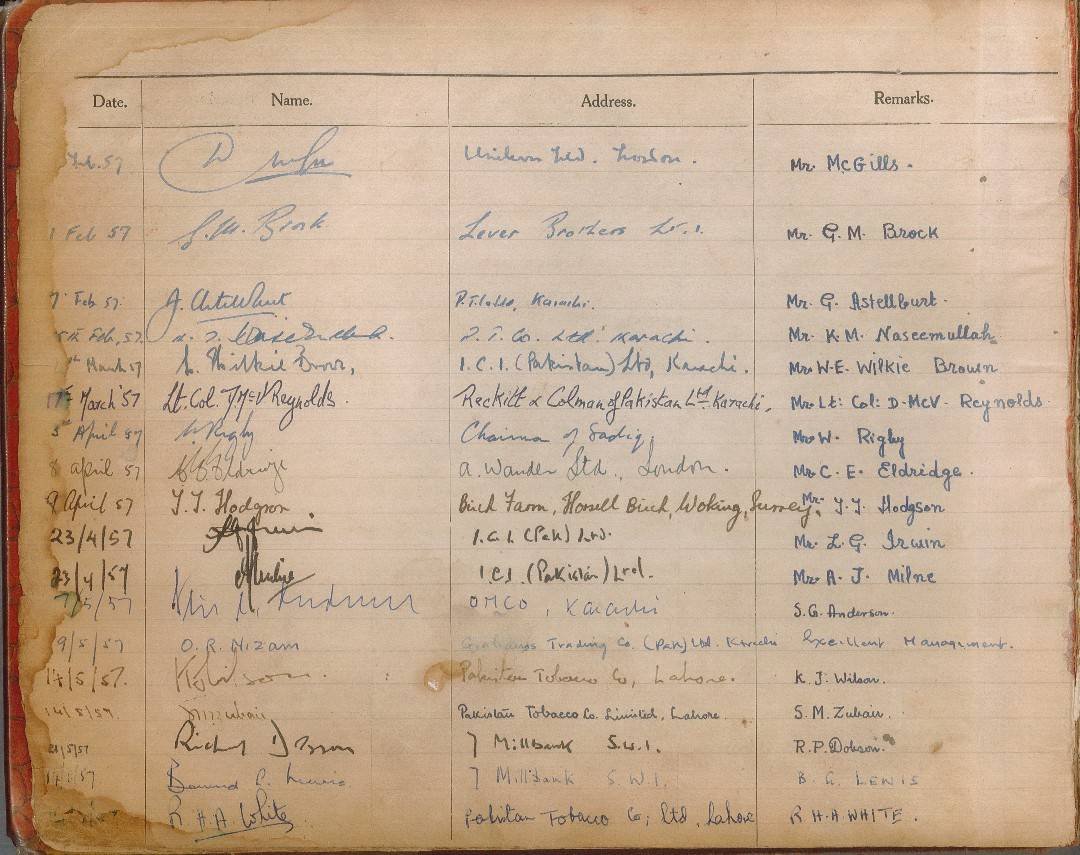 Date. Name. Address. Remarks.
Feb. 57 London. Mr. McGills.
1 Feb 57 G.M. Brock Lever Brothers Mr. G. M. Brock
7 Feb 57. P.T. Karachi. Mr. G. Astellburt.
Feb. 57. P.T. Co. Ltd. Karachi. Mr. K.M. Naseemullah
March 57 Wilkie Brown, I.C.I. (Pakistan) Ltd, Karachi. Mr. W.E. Wilkie Brown
17th March '57 Lt. Col. Reynolds. Reckitt & Colman of Pakistan Ltd. Karachi. Mr. Lt: Col: D. McV. Reynolds.
3rd April 57 W. Rigby Chairman of Mr. W. Rigby
8 April 57 C.E. Eldridge A. Wander Ltd., London. Mr. C. E. Eldridge.
9 April 57 T.T. Hodgson Birch Farm, Horsell Birch, Woking, Surrey. Mr. T.T. Hodgson
23/4/57 I.C.I. (Pak) Ltd. Mr. L.G. Irwin
23/4/57 I.C.I. (Pakistan) Ltd. Mr. A. J. Milne
7/5/57 OMCO, Karachi S.G. Anderson.
9/5/57 O.R. Nizam Trading Co. (Pak) Ltd. Karachi Excellent Management.
14/5/57. Pakistan Tobacco Co, Lahore. K.J. Wilson.
14/5/57. SMZubair Pakistan Tobacco Co. Limited, Lahore. S.M. Zubair.
21/5/57 Richard Dobson 7 Millbank S.W.1. R.P. Dobson.
57 Lewis 7 Millbank S.W.1. B. G. LEWIS
R.H.A. White Pakistan Tobacco Co; Ltd, Lahore R.H.A. WHITE.